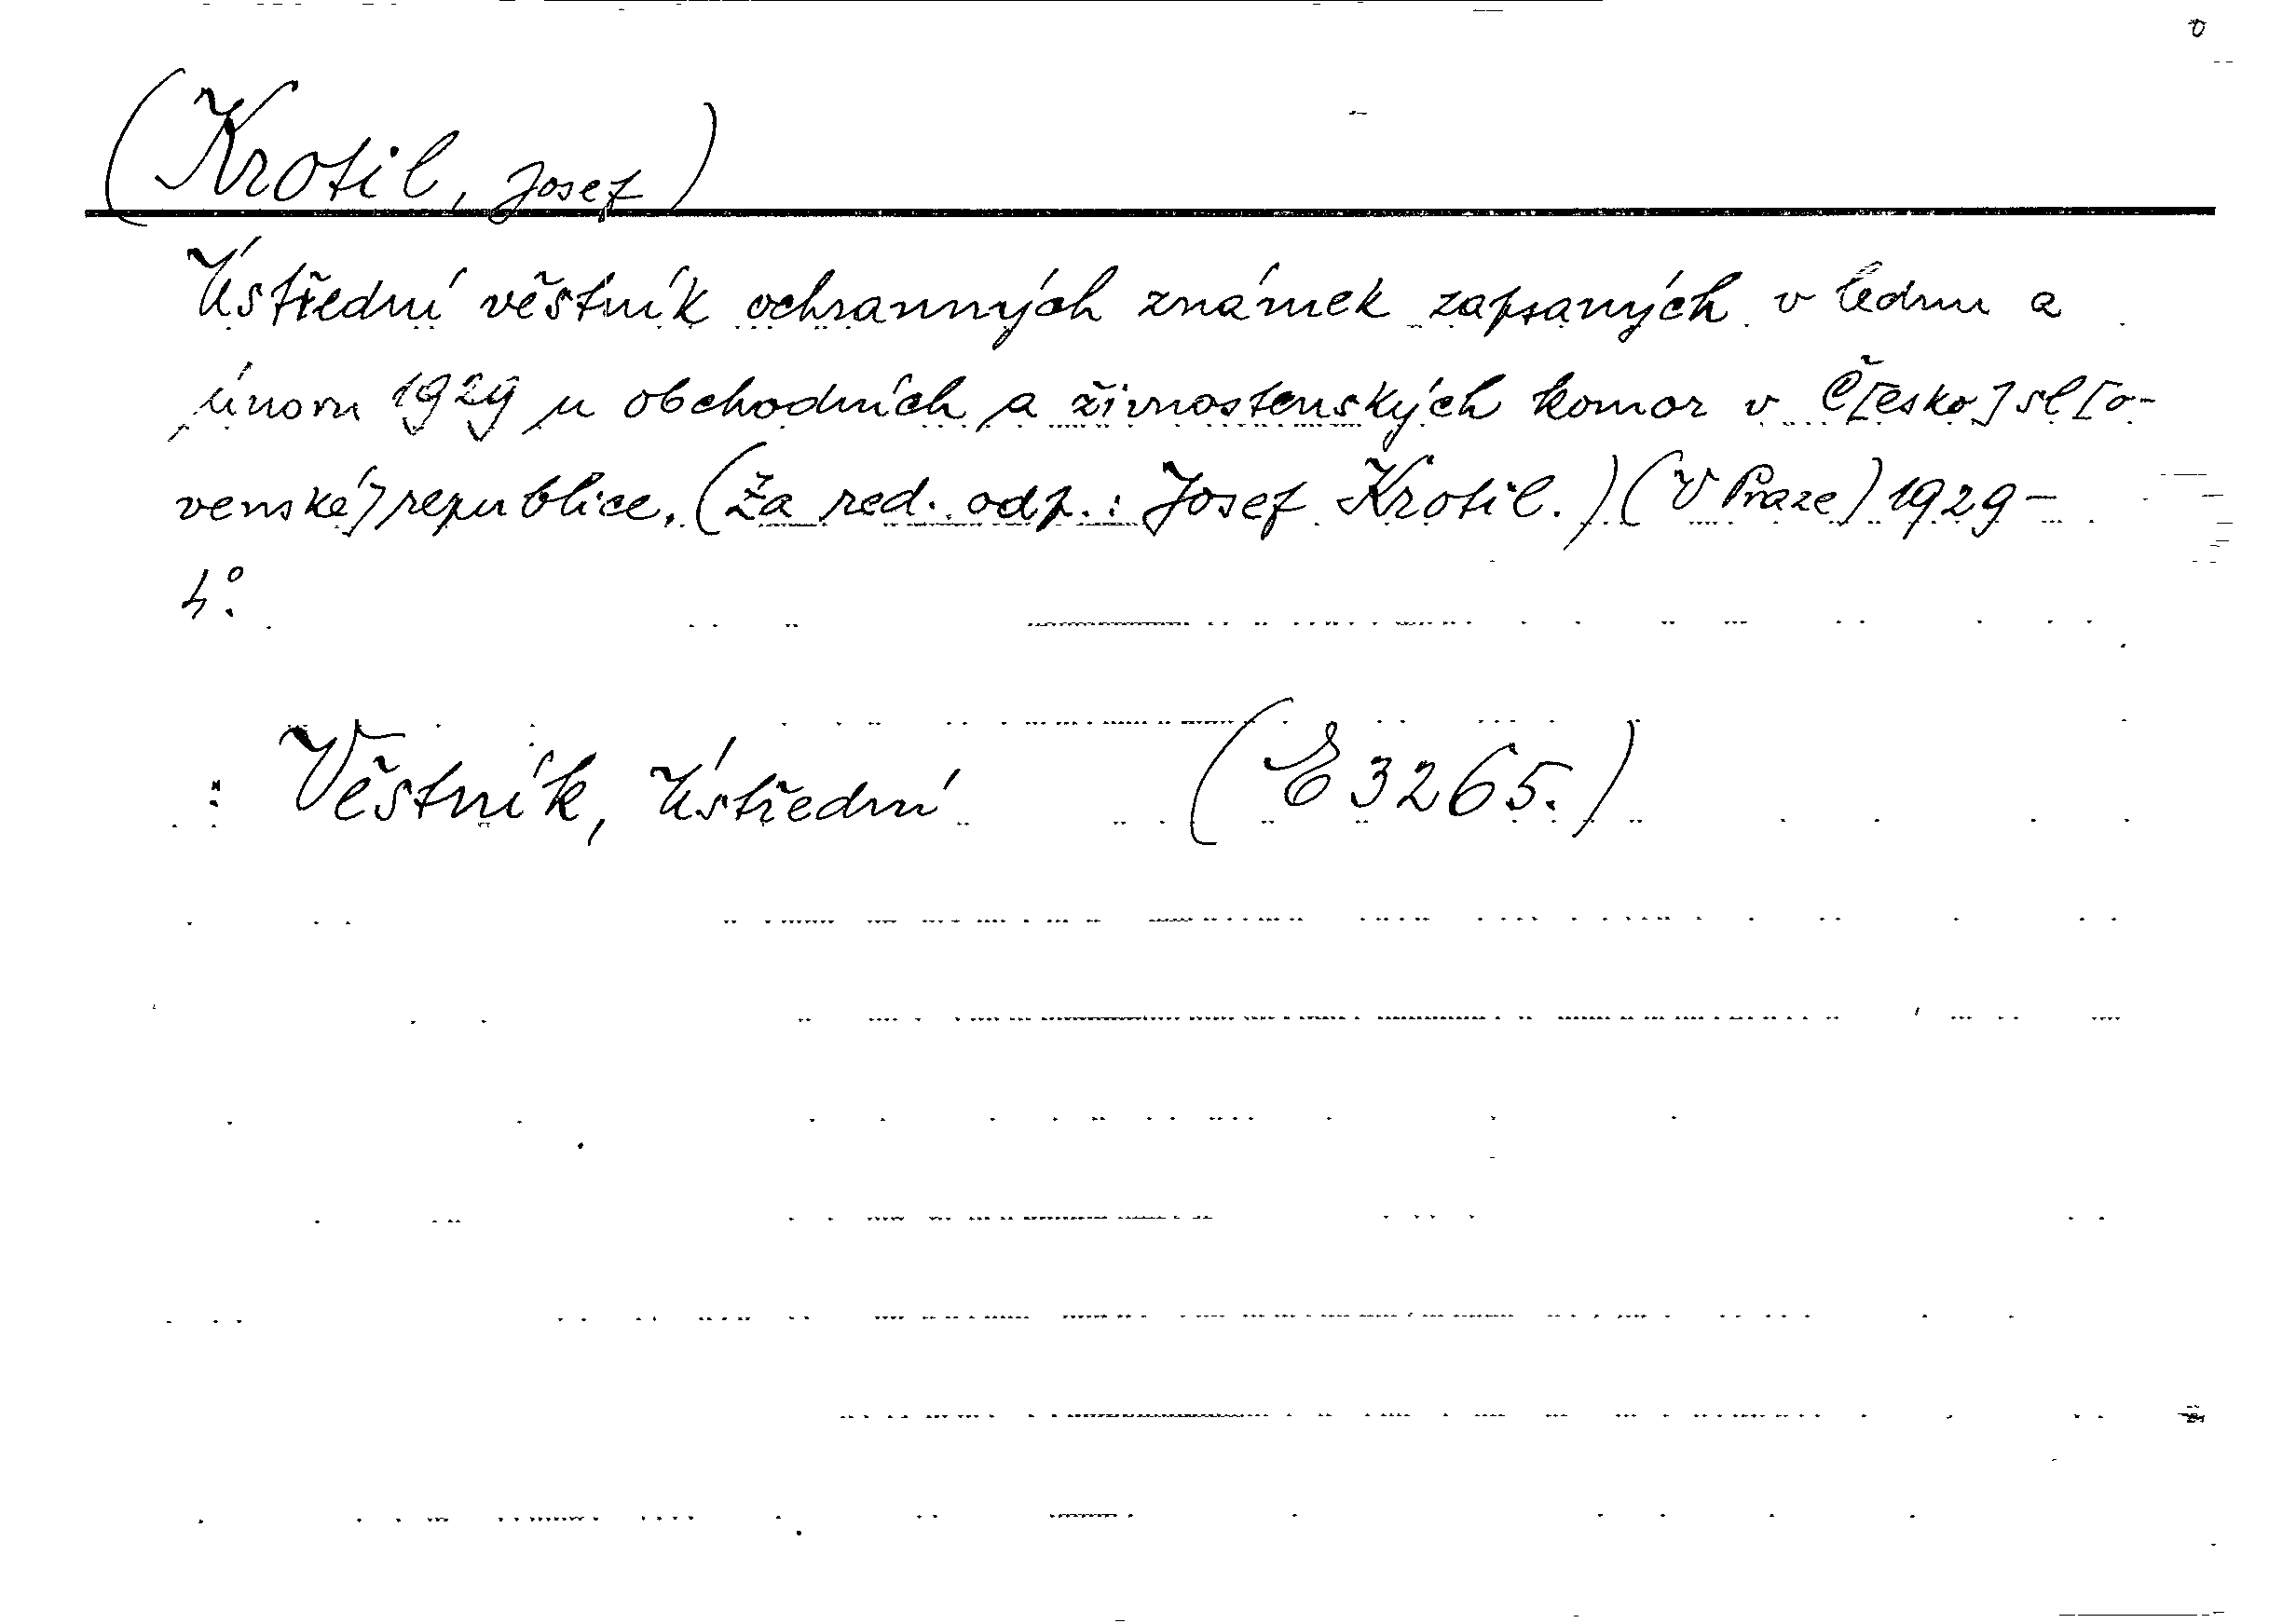 (Krotil, Josef)
Ústřední věstník ochranných známek zapsaných v lednu a
únoru 1929 u obchodních a živnostenských komor v Č[esko]sl[o-
venské] republice. (Za red. odp.: Josef Krotil.) (V Praze) 1929 —
4°.
: Věstník, Ústřední (E 3265.)